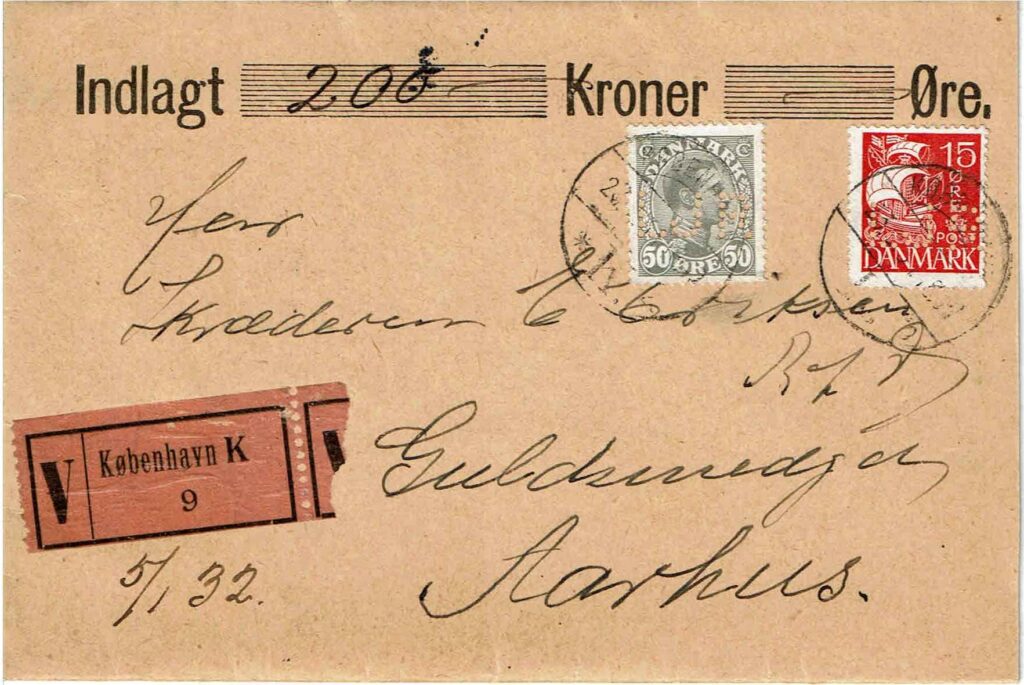 Indlagt 200 Kroner Øre.
DANMARK
50 ØRE 50
15
ØRE
POST
DANMARK
Herr
E Eriksen
V København K
9
Guldsmedga
Aarhus.
5/1 32.